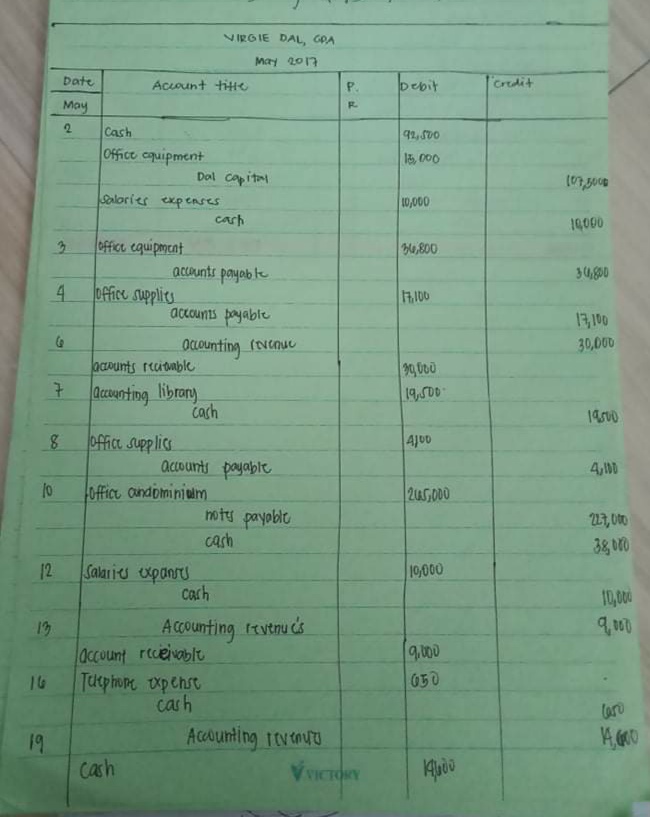 VIRGIE DAL, CPA
May 2017
Date Account title P. R Debit Credit
May
2 Cash 92,500
Office equipment 15,000
Dal Capital 107,5000
Salaries expenses 10,000
cash 10,000
3 Office equipment 34,800
accounts payable 34,800
4 Office supplies 17,100
accounts payable 17,100
6 accounting revenue 30,000
accounts receivable 30,000
7 accounting library 19,500
cash 19500
8 Office supplies 4100
accounts payable 4,100
10 Office condominium 265,000
notes payable 227,000
cash 38,000
12 Salaries expenses 10,000
cash 10,000
13 Accounting revenue's 9,000
account receivable 9,000
16 Telephone expense 650
cash 650
19 Accounting revenues 14,600
Cash 14,600
VICTORY